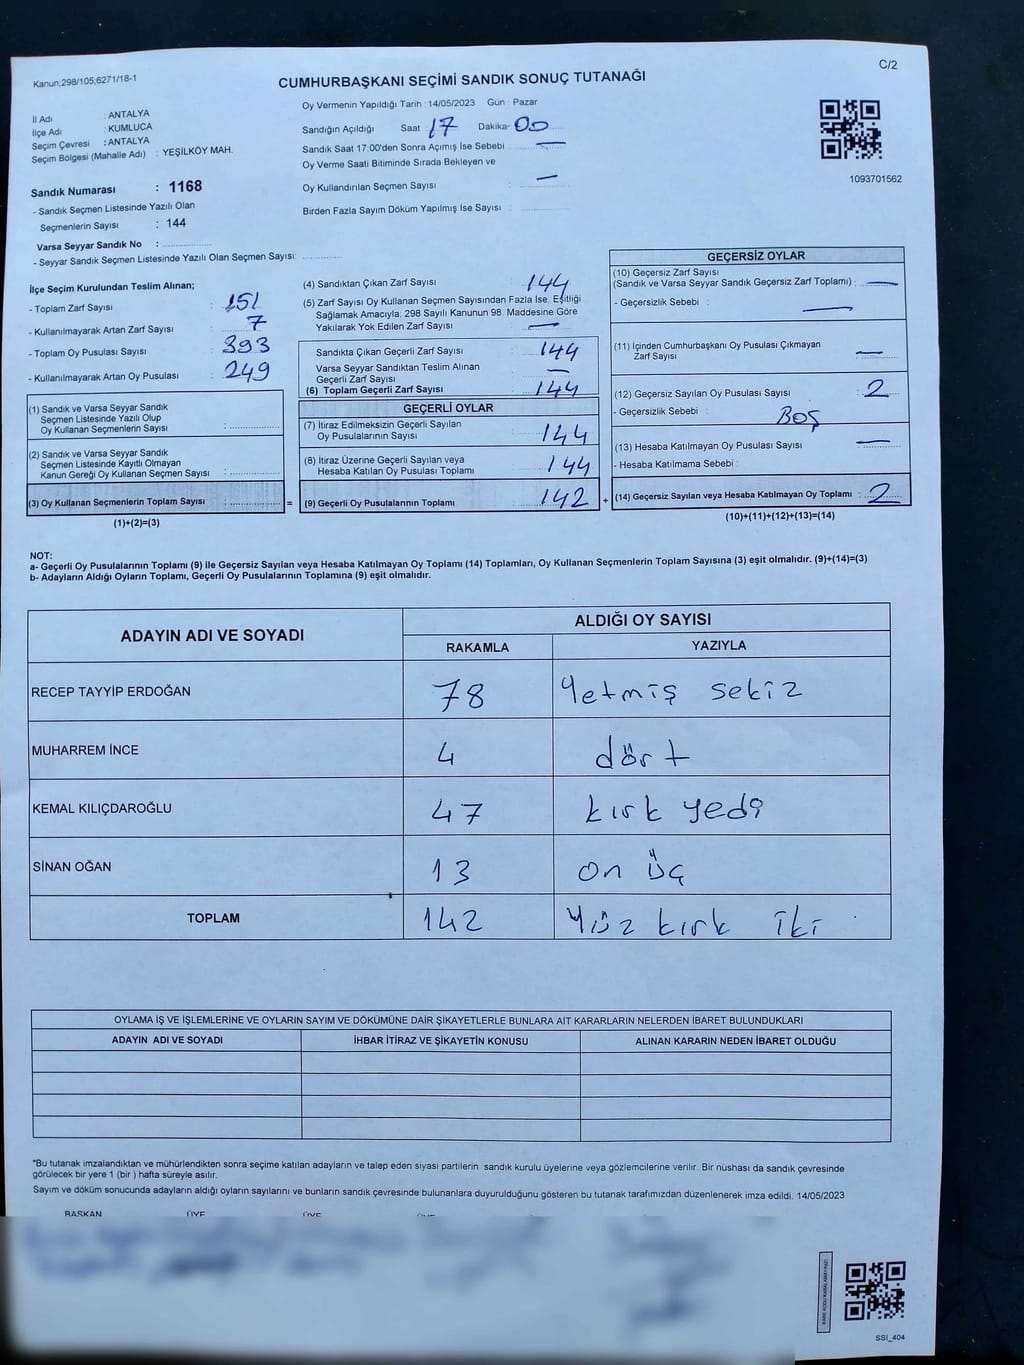 Kanun;298/105;6271/18-1
C/2
CUMHURBAŞKANI SEÇİMİ SANDIK SONUÇ TUTANAĞI
İl Adı : ANTALYA
İlçe Adı : KUMLUCA
Seçim Çevresi : ANTALYA
Seçim Bölgesi (Mahalle Adı) : YEŞİLKÖY MAH.
Sandık Numarası : 1168
- Sandık Seçmen Listesinde Yazılı Olan
Seçmenlerin Sayısı : 144
Varsa Seyyar Sandık No :
- Seyyar Sandık Seçmen Listesinde Yazılı Olan Seçmen Sayısı:
Oy Vermenin Yapıldığı Tarih : 14/05/2023 Gün : Pazar
Sandığın Açıldığı Saat 17 Dakika 00
Sandık Saat 17:00'den Sonra Açımış İse Sebebi : —
Oy Verme Saati Bitiminde Sırada Bekleyen ve
Oy Kullandırılan Seçmen Sayısı : —
Birden Fazla Sayım Döküm Yapılmış İse Sayısı :
1093701562
İlçe Seçim Kurulundan Teslim Alınan;
- Toplam Zarf Sayısı : 151
- Kullanılmayarak Artan Zarf Sayısı : 7
- Toplam Oy Pusulası Sayısı : 393
- Kullanılmayarak Artan Oy Pusulası : 249
(1) Sandık ve Varsa Seyyar Sandık
Seçmen Listesinde Yazılı Olup
Oy Kullanan Seçmenlerin Sayısı :
(2) Sandık ve Varsa Seyyar Sandık
Seçmen Listesinde Kayıtlı Olmayan
Kanun Gereği Oy Kullanan Seçmen Sayısı :
(3) Oy Kullanan Seçmenlerin Toplam Sayısı : =
(1)+(2)=(3)
(4) Sandıktan Çıkan Zarf Sayısı : 144
(5) Zarf Sayısı Oy Kullanan Seçmen Sayısından Fazla İse, Eşitliği
Sağlamak Amacıyla, 298 Sayılı Kanunun 98. Maddesine Göre
Yakılarak Yok Edilen Zarf Sayısı : —
Sandıkta Çıkan Geçerli Zarf Sayısı : 144
Varsa Seyyar Sandıktan Teslim Alınan
Geçerli Zarf Sayısı : —
(6) Toplam Geçerli Zarf Sayısı : 144
GEÇERLİ OYLAR
(7) İtiraz Edilmeksizin Geçerli Sayılan
Oy Pusulalarının Sayısı : 144
(8) İtiraz Üzerine Geçerli Sayılan veya
Hesaba Katılan Oy Pusulası Toplamı : 144
(9) Geçerli Oy Pusulalarının Toplamı : 142 +
GEÇERSİZ OYLAR
(10) Geçersiz Zarf Sayısı
(Sandık ve Varsa Seyyar Sandık Geçersiz Zarf Toplamı) : —
- Geçersizlik Sebebi : —
(11) İçinden Cumhurbaşkanı Oy Pusulası Çıkmayan
Zarf Sayısı : —
(12) Geçersiz Sayılan Oy Pusulası Sayısı : 2
- Geçersizlik Sebebi : BOŞ
(13) Hesaba Katılmayan Oy Pusulası Sayısı : —
- Hesaba Katılmama Sebebi :
(14) Geçersiz Sayılan veya Hesaba Katılmayan Oy Toplamı : 2
(10)+(11)+(12)+(13)=(14)
NOT:
a- Geçerli Oy Pusulalarının Toplamı (9) ile Geçersiz Sayılan veya Hesaba Katılmayan Oy Toplamı (14) Toplamları, Oy Kullanan Seçmenlerin Toplam Sayısına (3) eşit olmalıdır. (9)+(14)=(3)
b- Adayların Aldığı Oyların Toplamı, Geçerli Oy Pusulalarının Toplamına (9) eşit olmalıdır.
ADAYIN ADI VE SOYADI ALDIĞI OY SAYISI
RAKAMLA YAZIYLA
RECEP TAYYİP ERDOĞAN 78 Yetmiş sekiz
MUHARREM İNCE 4 dört
KEMAL KILIÇDAROĞLU 47 kırk yedi
SİNAN OĞAN 13 on üç
TOPLAM 142 Yüz kırk iki
OYLAMA İŞ VE İŞLEMLERİNE VE OYLARIN SAYIM VE DÖKÜMÜNE DAİR ŞİKAYETLERLE BUNLARA AİT KARARLARIN NELERDEN İBARET BULUNDUKLARI
ADAYIN ADI VE SOYADI İHBAR İTİRAZ VE ŞİKAYETİN KONUSU ALINAN KARARIN NEDEN İBARET OLDUĞU
*Bu tutanak imzalandıktan ve mühürlendikten sonra seçime katılan adayların ve talep eden siyasi partilerin sandık kurulu üyelerine veya gözlemcilerine verilir. Bir nüshası da sandık çevresinde
görülecek bir yere 1 (bir ) hafta süreyle asılır.
Sayım ve döküm sonucunda adayların aldığı oyların sayılarını ve bunların sandık çevresinde bulunanlara duyurulduğunu gösteren bu tutanak tarafımızdan düzenlenerek imza edildi. 14/05/2023
BAŞKAN ÜYE ÜYE ÜYE
SSI_404